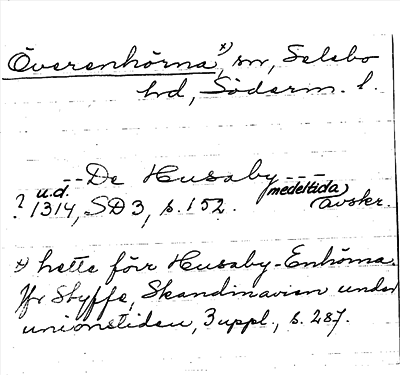 Överenhörna *), sn, Selebo
hd, Söderm. l.
-- De Husaby ---
? u.d. 1314, SD 3, s. 152. (medeltida) avskr.
*) hette förr Husaby-Enhörna.
Jfr Styffe, Skandinavien under
unionstiden, 3 uppl., s. 287.